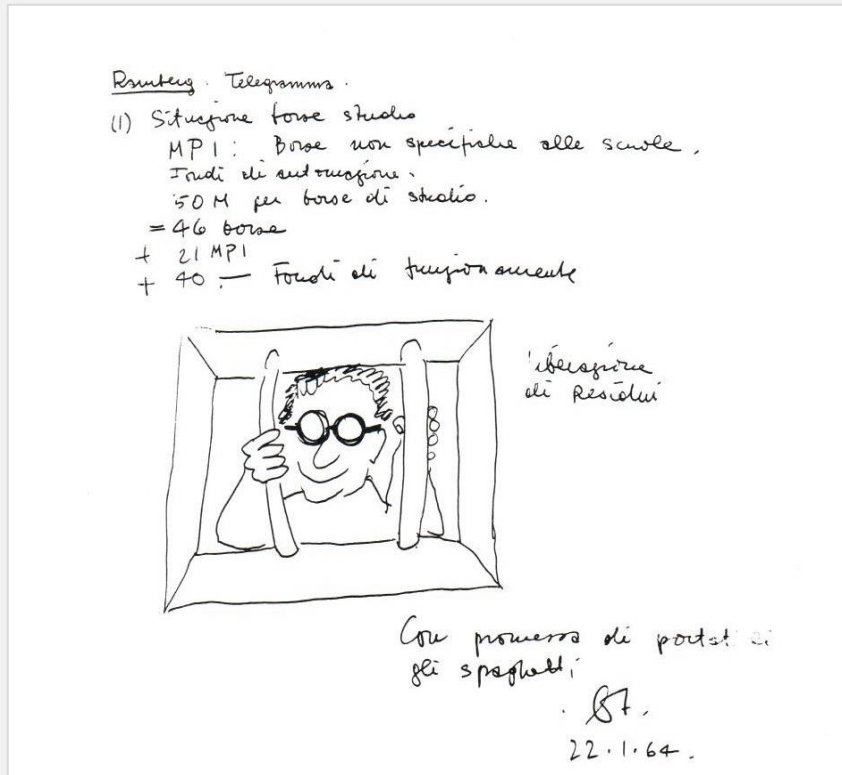 Ramberg. Telegramma.
(1) Situazione borse studio
MPI: Borse non specifiche alle scuole.
Fondi di
50 M per borse di studio.
= 46 borse
+ 21 MPI
+ 40.— Fondi di funzionamente
liberazione
di Residui
Con promessa di
gli spaghetti
22.1.64.